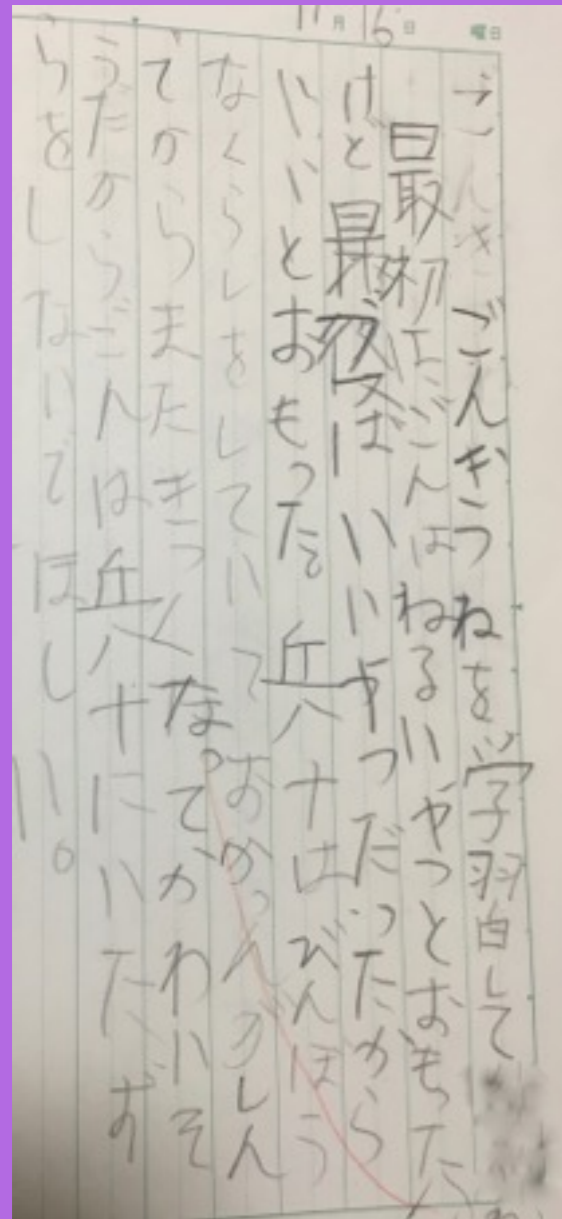 11月16日 曜日
ごんぎごんぎつねを学習して
最初はごんはわるいやつとおもった
けど最後はいいやつだったから
いいとおもった。兵十はびんぼう
なくらしをしていておかつんがしん
てからまたきつくなってかわいそ
うだからごんは兵十にいたず
らをしないでほしい。